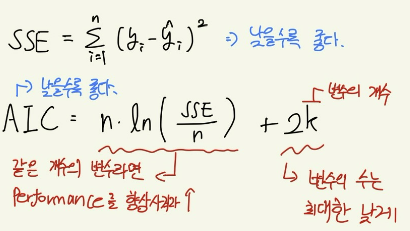 SSE = \sum_{i=1}^{n} (y_i - \hat{y}_i)^2 ⇒ 낮을수록 좋다.
↱ 낮을수록 좋다.
변수의 개수
AIC = n · ln(SSE/n) + 2k
같은 개수의 변수라면
Performance를 향상시켜라 ↑
↳ 변수의 수는
최대한 낮게